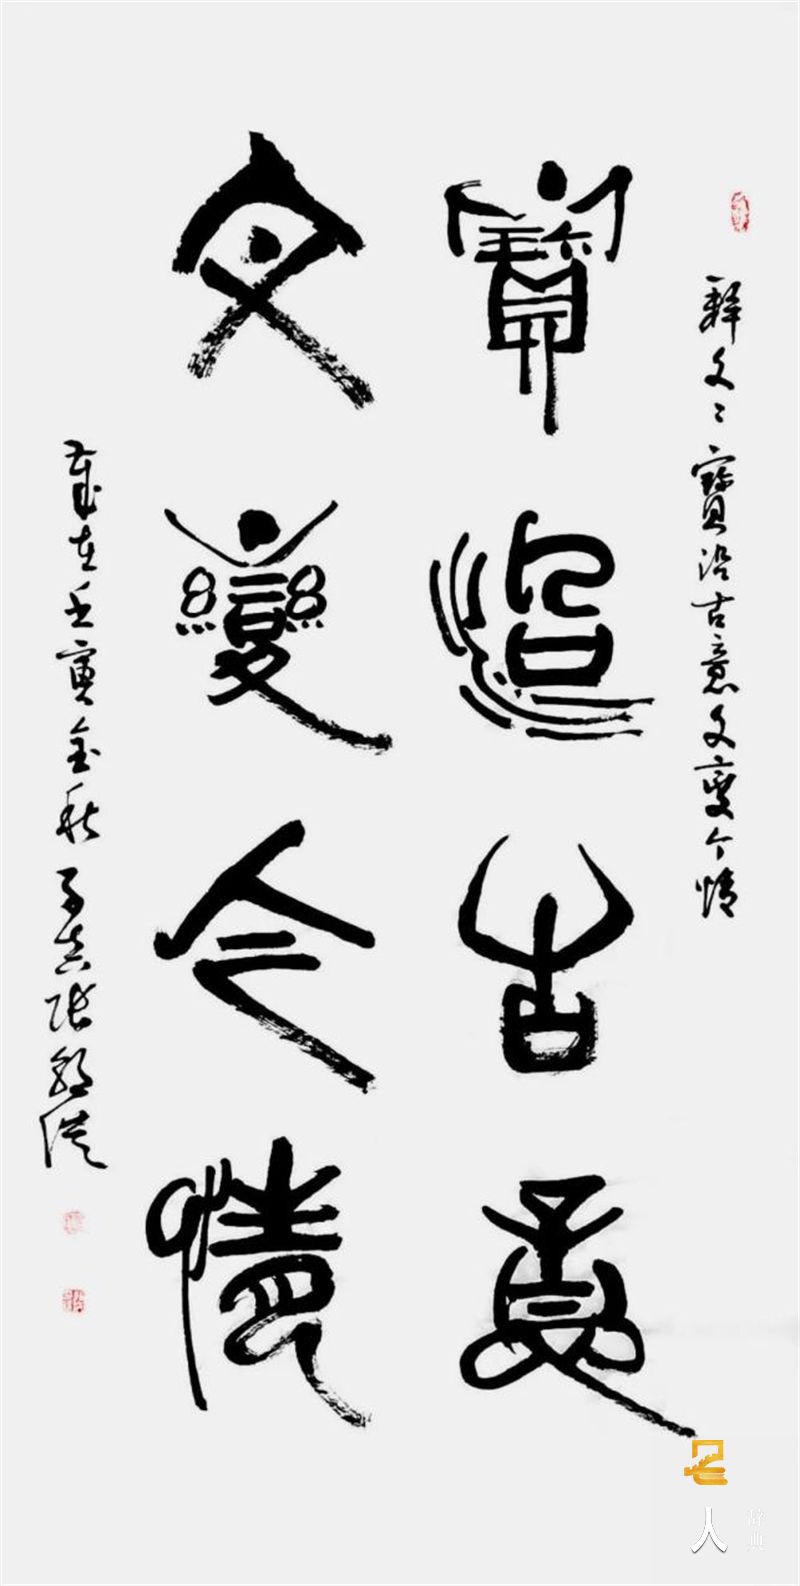 釋文：寶沿古意文變今情
寶沿古意
文變今情
歲在壬寅金秋
名人
辞典